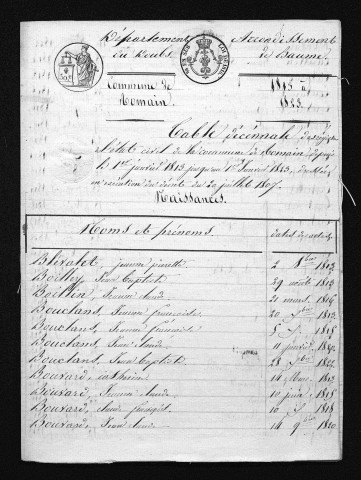 Département
du Doubs
Arrondissement
de Baume
Commune de
Romain
1813 à
1823.
Table décennale des registres
de l'état civil de la commune de Romain depuis
le 1er janvier 1813 jusqu'au 1er janvier 1823, dressée
en exécution du décret du 20 juillet 1807.
Naissances.
Noms et prénoms dates des actes
jeanne 2 1813
Boilley, jean Baptiste 29 août 1813
jeanne claude 21 mars 1816
Bouclans, françoise 20 7bre 1813
Bouclans, françoise 5
Bouclans, jean claude 11 janvier
Bouclans, jean Baptiste 28
Bouvard, catherine 14 1813
Bouvard, jeanne claude 10 juin 1815
Bouvard, claude françois 10 1818
Bouvard, jean claude 14 9bre 1820